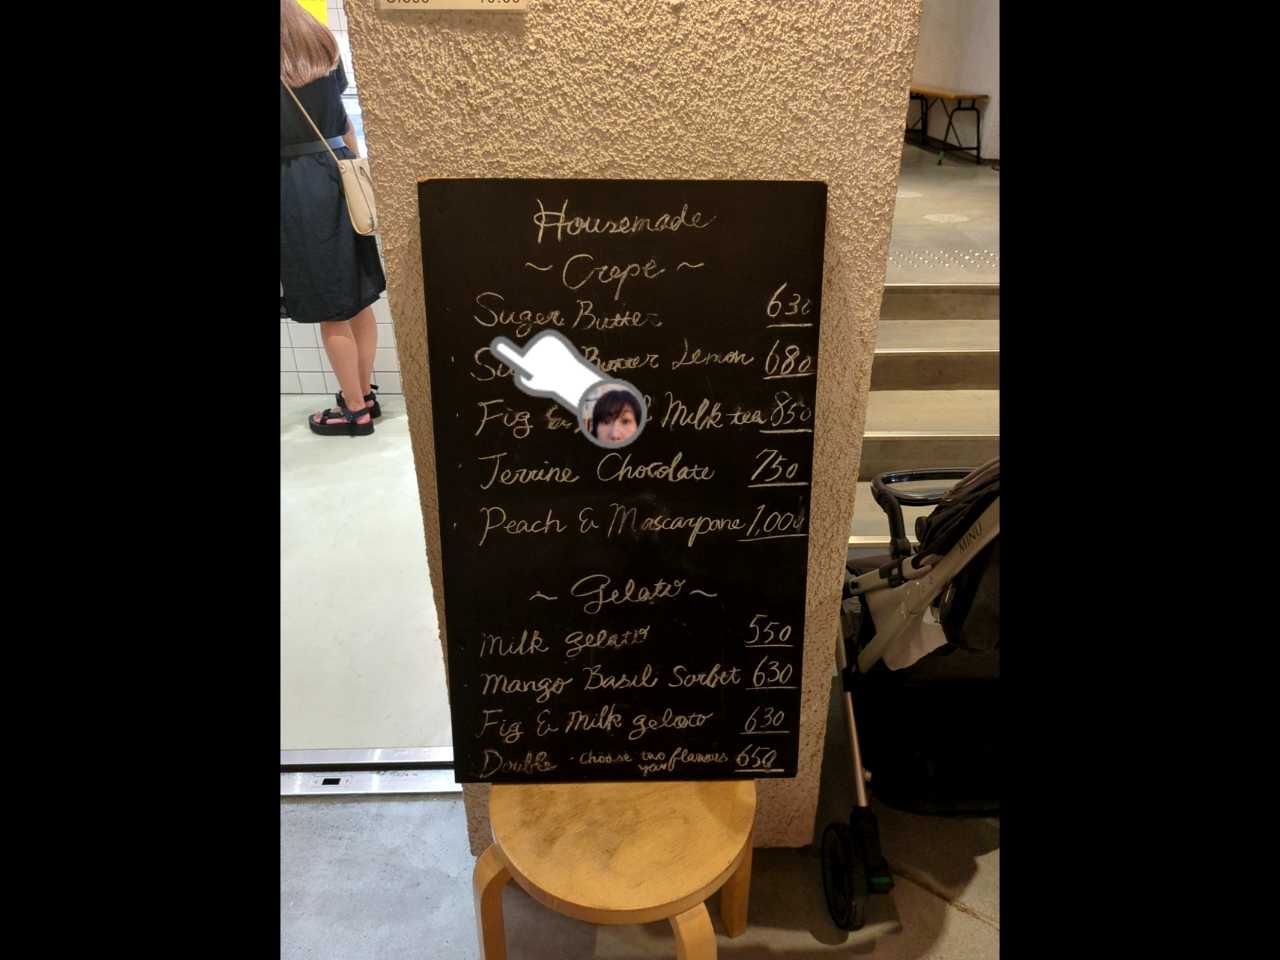 Housemade
~ Crepe ~
Suger Butter 630
Butter Lemon 680
Fig & Milk tea 850
Terrine Chocolate 750
Peach & Mascarpone 1,000
~ Gelato ~
Milk gelato 550
Mango Basil Sorbet 630
Fig & Milk gelato 630
Double · choose two flavours 650
MINU